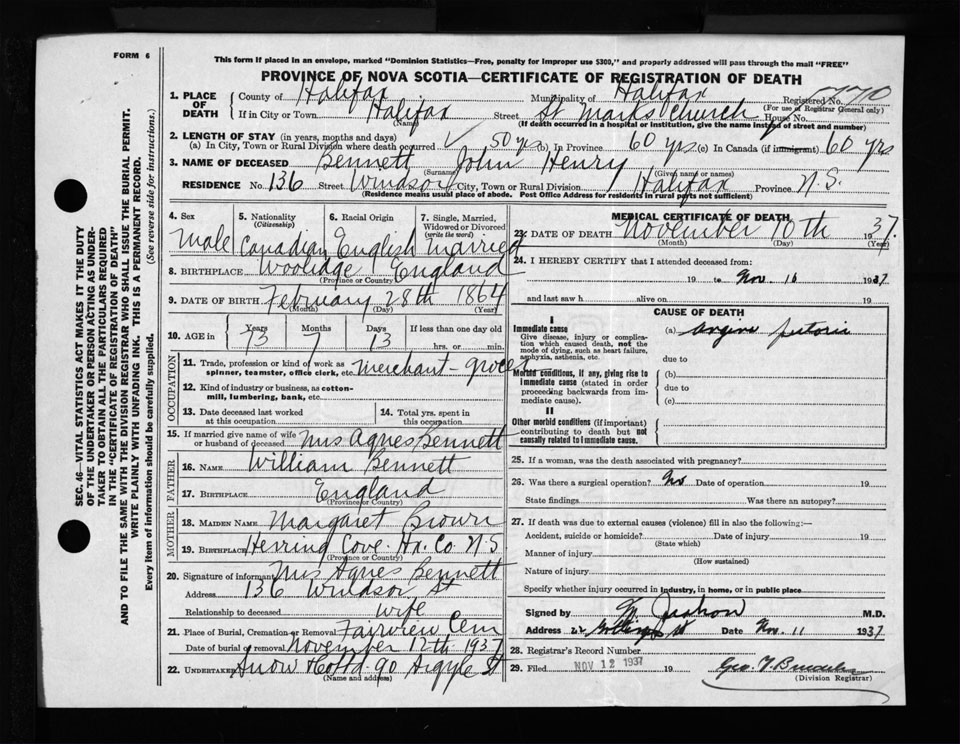 FORM 6
This form if placed in an envelope, marked "Dominion Statistics—Free, penalty for improper use $300," and properly addressed will pass through the mail "FREE"
PROVINCE OF NOVA SCOTIA—CERTIFICATE OF REGISTRATION OF DEATH
1. PLACE OF DEATH County of Halifax Municipality of Halifax Registered No.
(For use of Registrar General only)
If in City or Town Halifax Street St Marks Church House No.
(Name) (If death occurred in a hospital or institution, give the name instead of street and number)
2. LENGTH OF STAY (in years, months and days)
(a) In City, Town or Rural Division where death occurred ✓ 50 yrs (b) In Province 60 yrs (c) In Canada (if immigrant) 60 yrs
3. NAME OF DECEASED Bennett John Henry
(Surname) (Given name or names)
RESIDENCE No. 136 Street Windsor City, Town or Rural Division Halifax Province N.S.
(Residence means usual place of abode. Post Office Address for residents in rural parts not sufficient)
4. Sex Male
5. Nationality (Citizenship) Canadian
6. Racial Origin English
7. Single, Married, Widowed or Divorced (write the word) married
8. BIRTHPLACE Woolidge England
(Province or Country)
9. DATE OF BIRTH February 28th 1864
(Month) (Day) (Year)
10. AGE in Years Months Days If less than one day old
73 7 13 hrs. or min.
OCCUPATION
11. Trade, profession or kind of work as spinner, teamster, office clerk, etc. merchant - grocer
12. Kind of industry or business, as cotton-mill, lumbering, bank, etc.
13. Date deceased last worked at this occupation
14. Total yrs. spent in this occupation
15. If married give name of wife or husband of deceased Mrs Agnes Bennett
FATHER
16. NAME William Bennett
17. BIRTHPLACE England
(Province or Country)
MOTHER
18. MAIDEN NAME Margaret Brown
19. BIRTHPLACE Herring Cove Hx. Co N S
(Province or Country)
20. Signature of informant Mrs Agnes Bennett
Address 136 Windsor St
Relationship to deceased wife
21. Place of Burial, Cremation or Removal Fairview Cem
Date of burial or removal November 12th 1937
22. Undertaker Snow & Co Ltd 90 Argyle St
(Name and address)
MEDICAL CERTIFICATE OF DEATH
23. DATE OF DEATH November 10th 1937.
(Month) (Day) (Year)
24. I HEREBY CERTIFY that I attended deceased from:
19 to Nov. 10 1937
and last saw h alive on 19
CAUSE OF DEATH
I
Immediate cause
Give disease, injury or complication which caused death, not the mode of dying, such as heart failure, asphyxia, asthenia, etc.
(a) angina pectoris
due to
Morbid conditions, if any, giving rise to immediate cause (stated in order proceeding backwards from immediate cause).
(b)
due to
(c)
II
Other morbid conditions (if important) contributing to death but not causally related to immediate cause.
25. If a woman, was the death associated with pregnancy?
26. Was there a surgical operation? No Date of operation 19
State findings Was there an autopsy?
27. If death was due to external causes (violence) fill in also the following:—
Accident, suicide or homicide? Date of injury 19
(State which)
Manner of injury
(How sustained)
Nature of injury
Specify whether injury occurred in industry, in home, or in public place
Signed by M.D.
Address St Date Nov. 11 1937
28. Registrar's Record Number
29. Filed NOV 12 1937 19
(Division Registrar)
SEC. 46—VITAL STATISTICS ACT MAKES IT THE DUTY
OF THE UNDERTAKER OR PERSON ACTING AS UNDER-
TAKER TO OBTAIN ALL THE PARTICULARS REQUIRED
IN THE "CERTIFICATE OF REGISTRATION OF DEATH"
AND TO FILE THE SAME WITH THE DIVISION REGISTRAR WHO SHALL ISSUE THE BURIAL PERMIT.
WRITE PLAINLY WITH UNFADING INK. THIS IS A PERMANENT RECORD.
Every item of information should be carefully supplied. (See reverse side for instructions.)